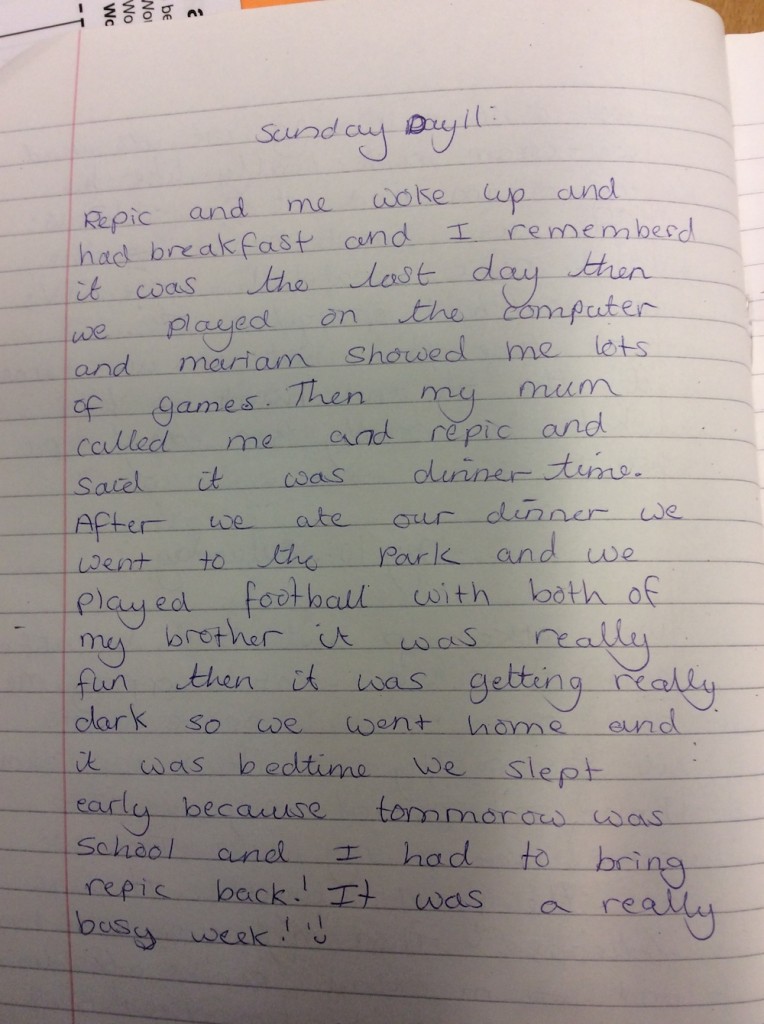 Sunday Day 11:
Repic and me woke up and
had breakfast and I rememberd
it was the last day then
we played on the computer
and mariam showed me lots
of games. Then my mum
called me and repic and
said it was dinner time.
After we ate our dinner we
went to the Park and we
played football with both of
my brother it was really
fun then it was getting really
dark so we went home and
it was bedtime we slept
early because tommorow was
School and I had to bring
repic back! It was a really
busy week! :)